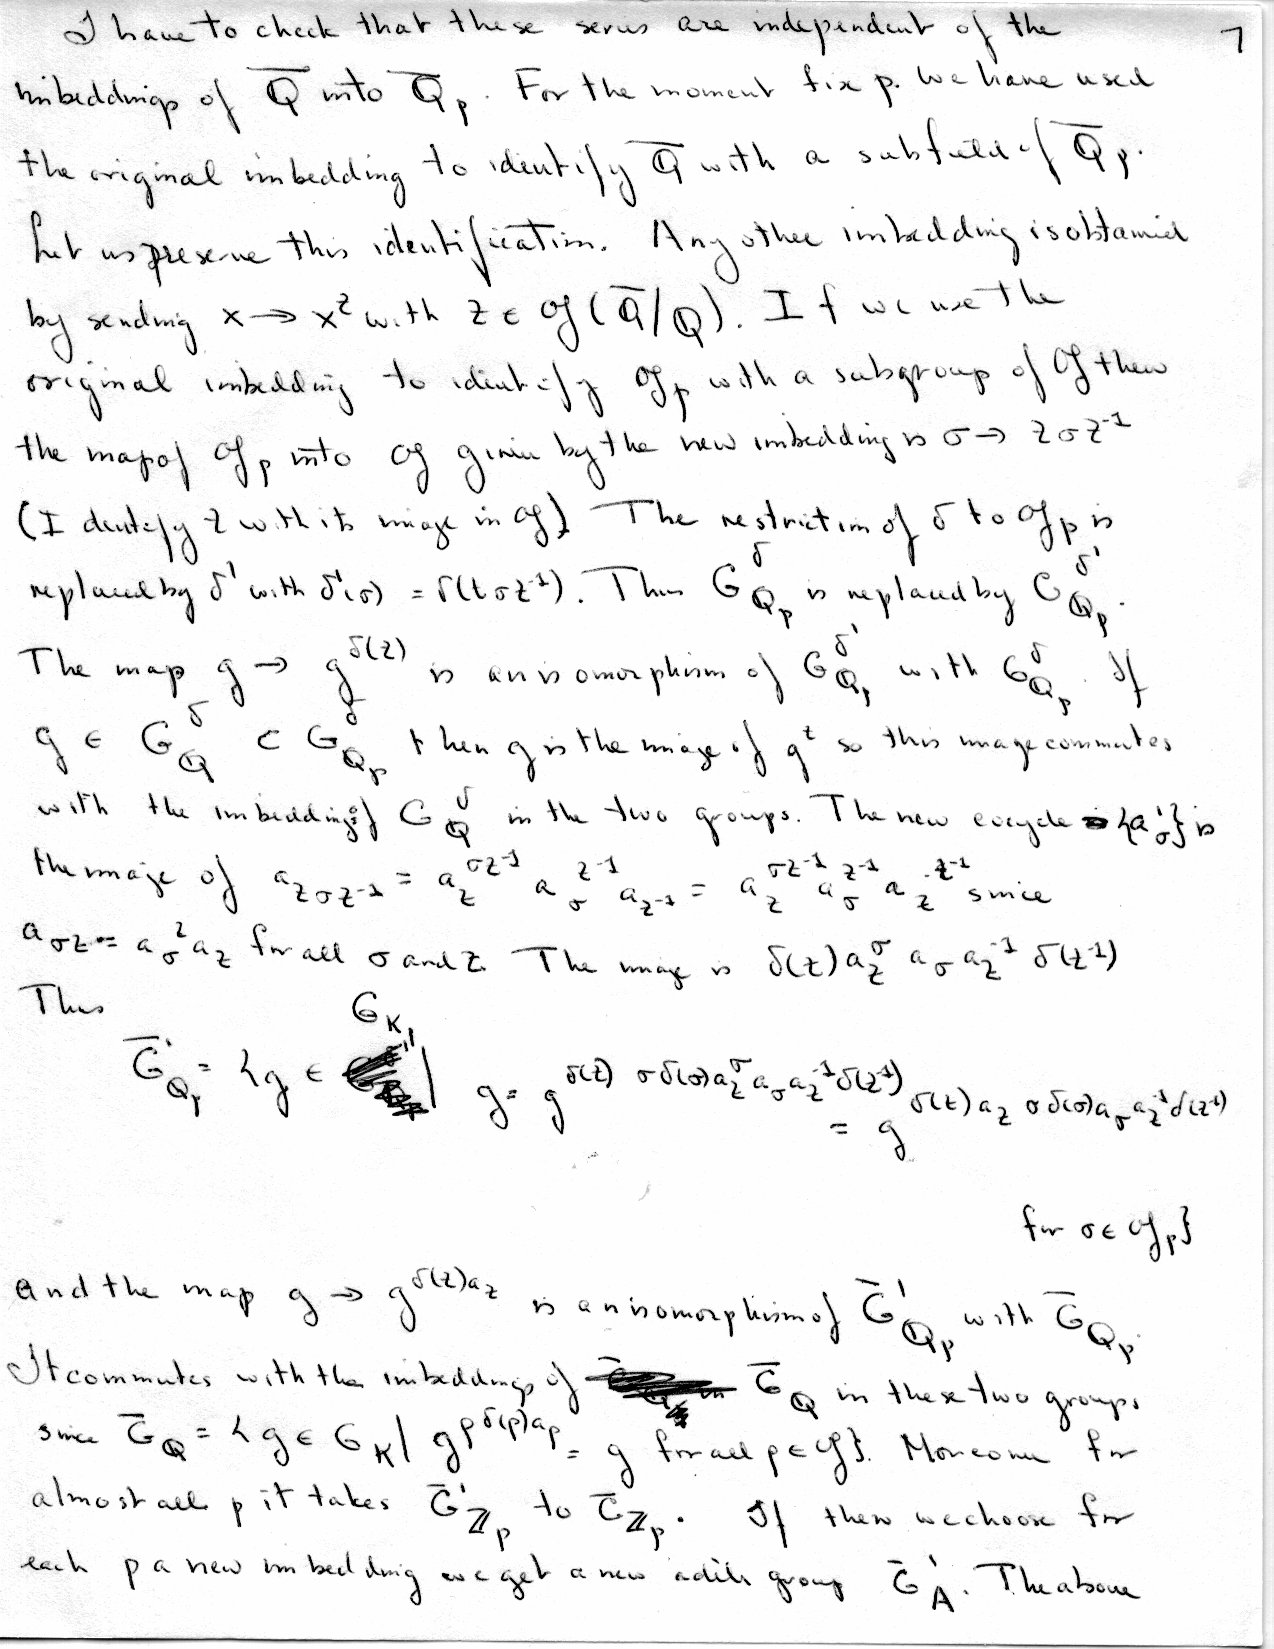 7
I have to check that these series are independent of the
imbeddings of Q̅ into Q̅_p. For the moment fix p. We have used
the original imbedding to identify Q̅ with a subfield of Q̅_p.
Let us preserve this identification. Any other imbedding is obtained
by sending x → x^τ with τ ∈ 𝔤(Q̅/Q). If we use the
original imbedding to identify 𝔤_p with a subgroup of 𝔤 then
the map of 𝔤_p into 𝔤 given by the new imbedding is σ → τστ^{-1}
(Identify τ with its image in 𝔤) The restriction of δ to 𝔤_p is
replaced by δ' with δ'(σ) = δ(τστ^{-1}). Thus G^δ_{Q_p} is replaced by G^{δ'}_{Q_p}.
The map g → g^{δ(τ)} is an isomorphism of G^{δ'}_{Q_p} with G^δ_{Q_p}. If
g ∈ G^δ_Q ⊂ G^δ_{Q_p} then g is the image of g^τ so this image commutes
with the imbeddings of G^δ_Q in the two groups. The new cocycle {a'_σ} is
the image of a_{τστ^{-1}} = a_τ^{στ^{-1}} a_σ^{τ^{-1}} a_{τ^{-1}} = a_τ^{στ^{-1}} a_σ^{τ^{-1}} a_τ^{-τ^{-1}} since
a_{στ} = a_σ^τ a_τ for all σ and τ. The image is δ(τ) a_τ^σ a_σ a_τ^{-1} δ(τ^{-1})
Thus
G̅'_{Q_p} = {g ∈ G_{K_p} | g = g^{δ(τ) σδ(σ) a_τ^σ a_σ a_τ^{-1} δ(τ^{-1})} = g^{δ(τ) a_τ σδ(σ) a_σ a_τ^{-1} δ(τ^{-1})}
for σ ∈ 𝔤_p}
and the map g → g^{δ(τ)a_τ} is an isomorphism of G̅'_{Q_p} with G̅_{Q_p}.
It commutes with the imbeddings of G̅_Q in these two groups
since G̅_Q = {g ∈ G_K | g^{ρδ(ρ)a_ρ} = g for all ρ ∈ 𝔤}. Moreover for
almost all p it takes G̅'_{Z_p} to G̅_{Z_p}. If then we choose for
each p a new imbedding we get a new adèle group G̅'_A. The above